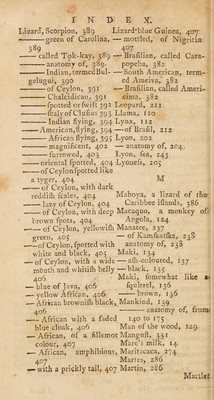 INDEX.
Lizard, Scorpion, 389
— green of Carolina, 389
— called Tok-kay, 389
— anatomy of, 389
— Indian, termed Bulgelugui, 390
— of Ceylon, 391
— Chalcidican, 391
— spotted or swift 392
— scaly of Clusius 393
— Indian flying, 394
— American, flying, 394
— African flying, 395
— magnificent, 402
— furrowed, 403
— oriental spotted, 404
— of Ceylon spotted like a tyger, 404
— of Ceylon, with dark reddish scales, 404
— lazy of Ceylon, 404
— of Ceylon, with deep brown spots, 404
— of Ceylon, yellowish green, 405
— of Ceylon, spotted with white and black, 405
— of Ceylon, with a wide mouth and whitish belly 406
— blue of Java, 406
— yellow African, 406
— African brownish black, 406
— African with a faded blue cloak, 406
— African, of a fillemot colour, 407
— African, amphibious, 407
— with a prickly tail, 407
Lizard blue Guinea, 407
— mottled, of Nigritia 407
— Brasilian, called Carapopeba, 382
— South American, termed Ameiva, 382
— Brasilian, called Americima, 382
Leopard, 211
Llama, 110
Lynx, 112
— of Brasil, 212
Loon, 202
— anatomy of, 204
Lyon, sea, 243
Lyoness, 205
M
Maboya, a lizard of the Caribbee islands, 386
Macaquo, a monkey of Angola, 124
Manatee, 237
— of Kamskatska, 238
— anatomy of, 238
Maki, 134
— ash-coloured, 137
— black, 135
Maki, somewhat like a squirrel, 136
— brown, 136
Mankind, 139
— anatomy of, from 140 to 175
Man of the wood, 129
Mangust, 331
Mare's milk, 14
Maritacaca, 274
Martes, 286
Martin, 286
Martlet